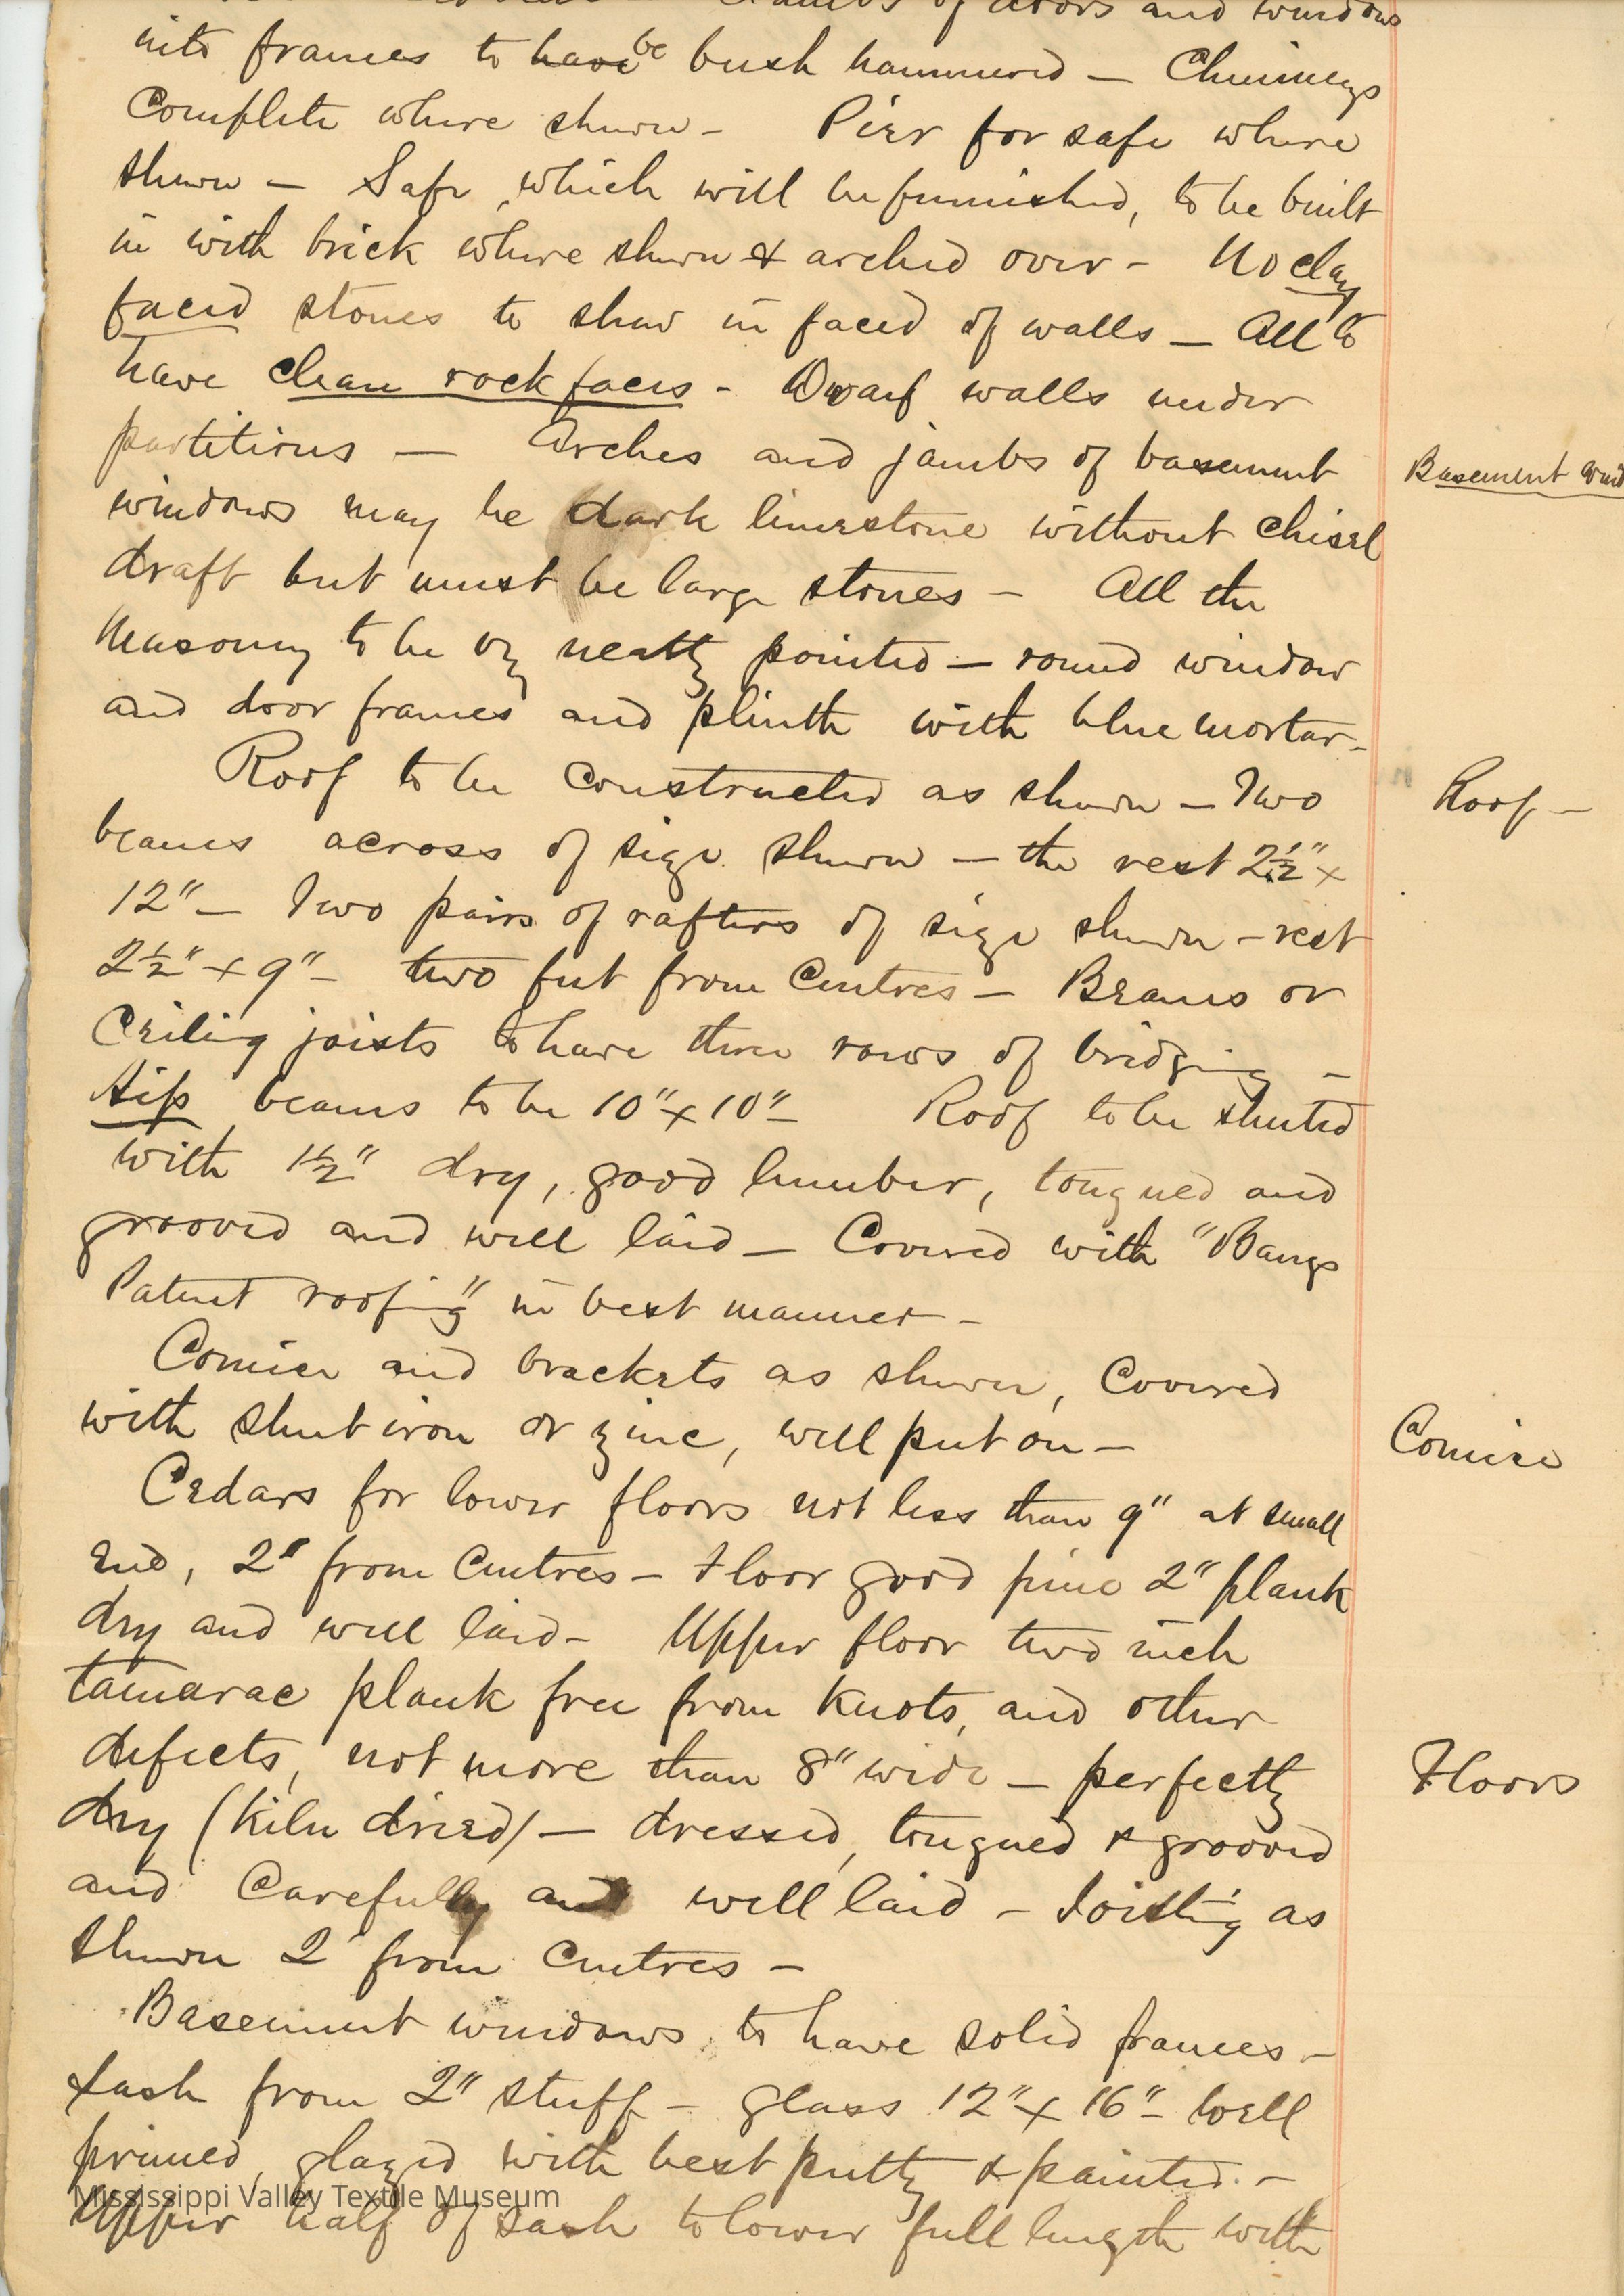 of doors and windows
into frames to have be bush hammered — Chimneys
Complete where shown — Pier for safe where
shown — Safe, which will be furnished, to be built
in with brick where shown & arched over — No clay
faced stones to show in faced of walls — All to
have clean rock faces — Dwarf walls under
partitions — Arches and jambs of basement
Basement
windows may be dark limestone without chisel
draft but must be large stones — All the
Masonry to be neatly pointed — round window
and door frames and plinth with blue mortar —
Roof to be constructed as shown — Two
Roof —
beams across of size shown — the rest 2½" x
12" — Two pairs of rafters of size shown — rest
2½" x 9" — two feet from Centres — Beams or
Ceiling joists to have three rows of bridging —
Hip beams to be 10" x 10" — Roof to be sheeted
with 1½" dry, good lumber, tongued and
grooved and well laid — Covered with "Bangs
Patent roofing" in best manner —
Cornice and brackets as shown, Covered
with sheet iron or zinc, well put on —
Cornice
Cedars for lower floors not less than 9" at small
End, 2' from Centres — Floor good pine 2" plank
dry and well laid — Upper floor two inch
tamarac plank free from Knots, and other
defects, not more than 8" wide — perfectly
Floors
dry (Kiln dried) — dressed, tongued & grooved
and Carefully and well laid — Joisting as
shown 2' from Centres —
Basement windows to have solid frames —
sash from 2" stuff — glass 12" x 16" — well
primed, glazed with best putty & painted. —
Mississippi Valley Textile Museum
Upper half of sash to lower full length with